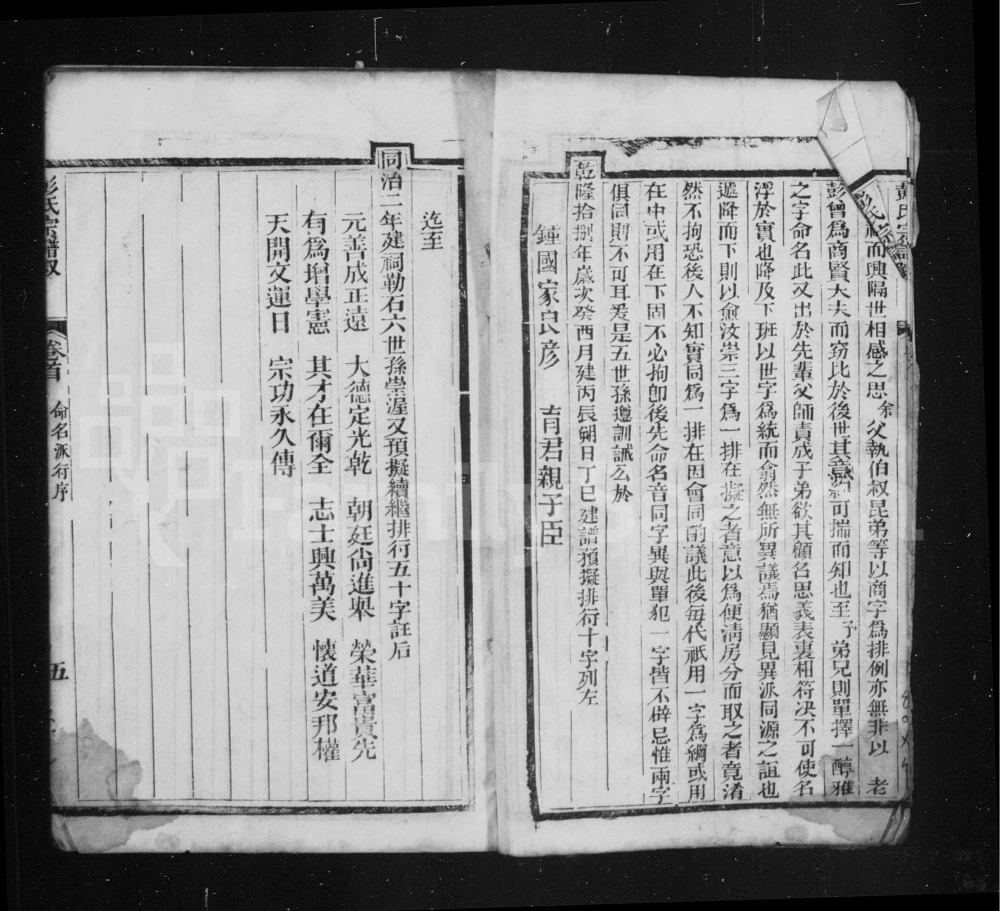 彭氏宗譜
祖而興隔世相感之思余父執伯叔昆弟等以商字為排例亦無非以 老
彭曾為商賢大夫而窃比於後世其意約可揣而知也至予弟兄則單擇一醇雅
之字命名此又出於先輩父師責成于弟欲其顧名思義表裏相符決不可使名
浮於實也降及下班以世字爲統而翕然無所異議焉猶顯見異派同源之誼也
遞降而下則以愈汝崇三字爲一排在擬之者意以爲便清房分而取之者竟淆
然不拘恐後人不知實同爲一排在因會同酌議此後每代祇用一字爲綱或用
在中或用在下固不必拘卽後先命名音同字異與單犯一字皆不避忌惟兩字
俱同則不可耳爰是五世孫遵訓誡公於
乾隆拾捌年歲次癸酉月建丙辰朔日丁巳建譜預擬排行十字列左
鍾國家良彦 育君親子臣
迄至
同治二年建祠勒石六世孫崇渥又預擬續繼排行五十字註后
元善成正遠 大德定光乾 朝廷尙進舉 榮華富貴先
有爲增學憲 其才在爾全 志士興萬美 懷道安邦權
天開文運日 宗功永久傳
彭氏宗譜 卷首 命名派行序 五